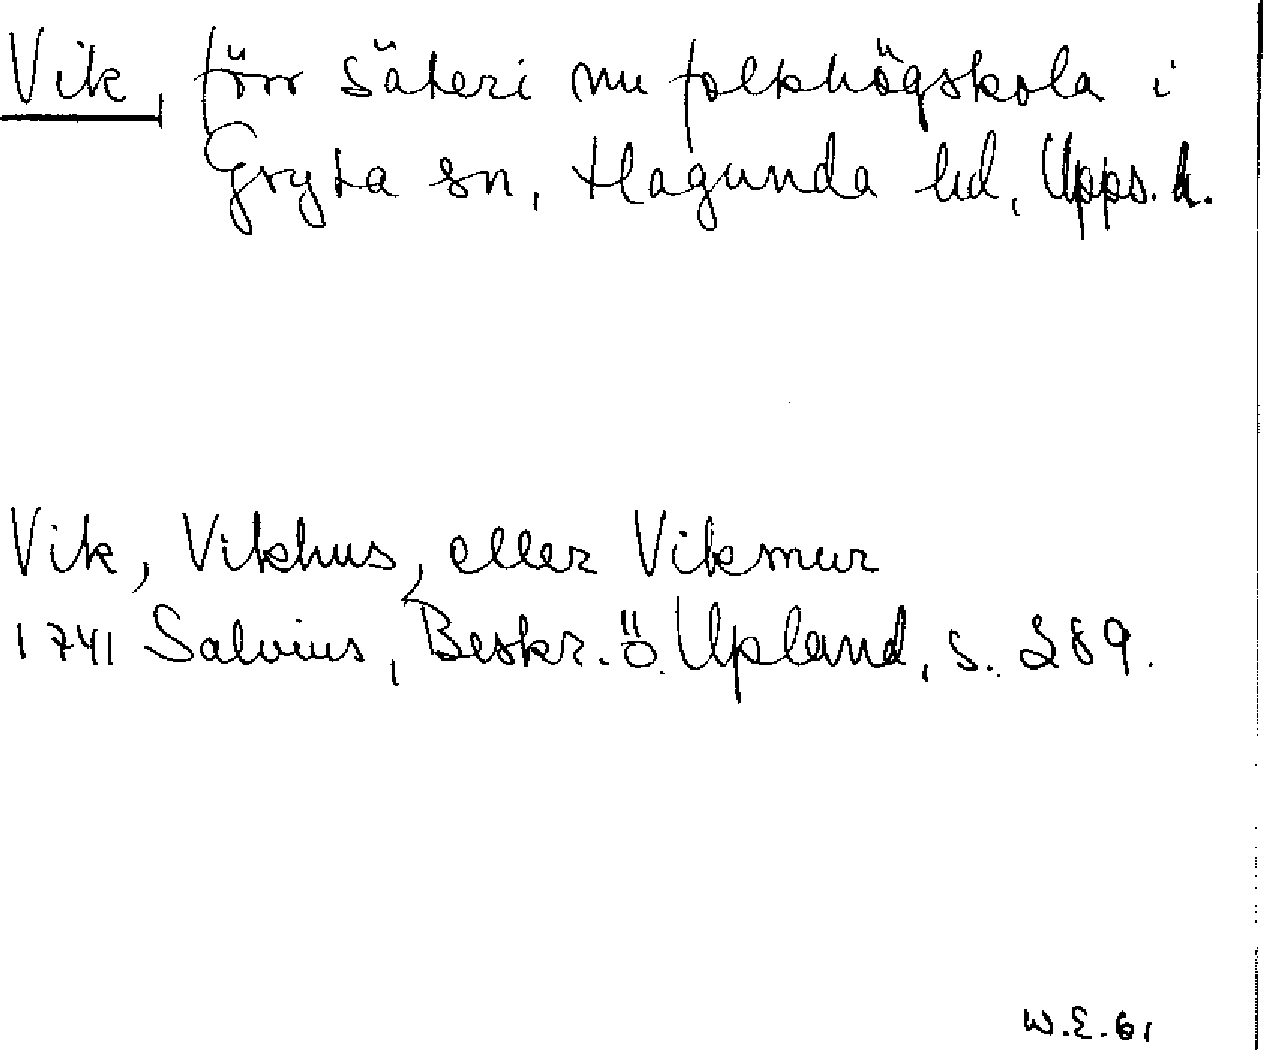 Vik, förr säteri nu folkhögskola i
Gryta sn, Hagunda hd, Upps. l.
Vik, Vikhus, eller Vikmur
1741 Salvius, Beskr. ö. Upland, s. 289.
W.E. 61